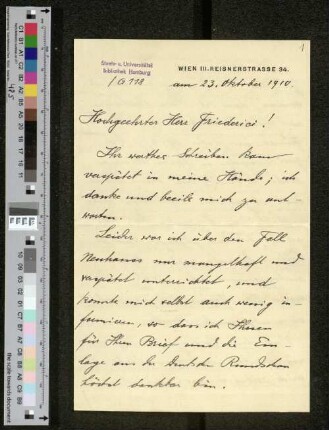 1
Staats- u. Universitäts-
Bibliothek Hamburg
WIEN III. REISNERSTRASSE 34.
am 23. Oktober 1910.
Hochgeehrter Herr Friederici!
Ihr werthes Schreiben kam
verspätet in meine Hände; ich
danke und beeile mich zu ant-
worten.
Leider war ich über den Fall
Neuhaus nur mangelhaft und
verspätet unterrichtet, und
konnte mich selbst auch wenig in-
formieren, so dass ich Ihnen
für Ihren Brief und die Ein-
lage aus der Deutsch. Rundschau
höchst dankbar bin.